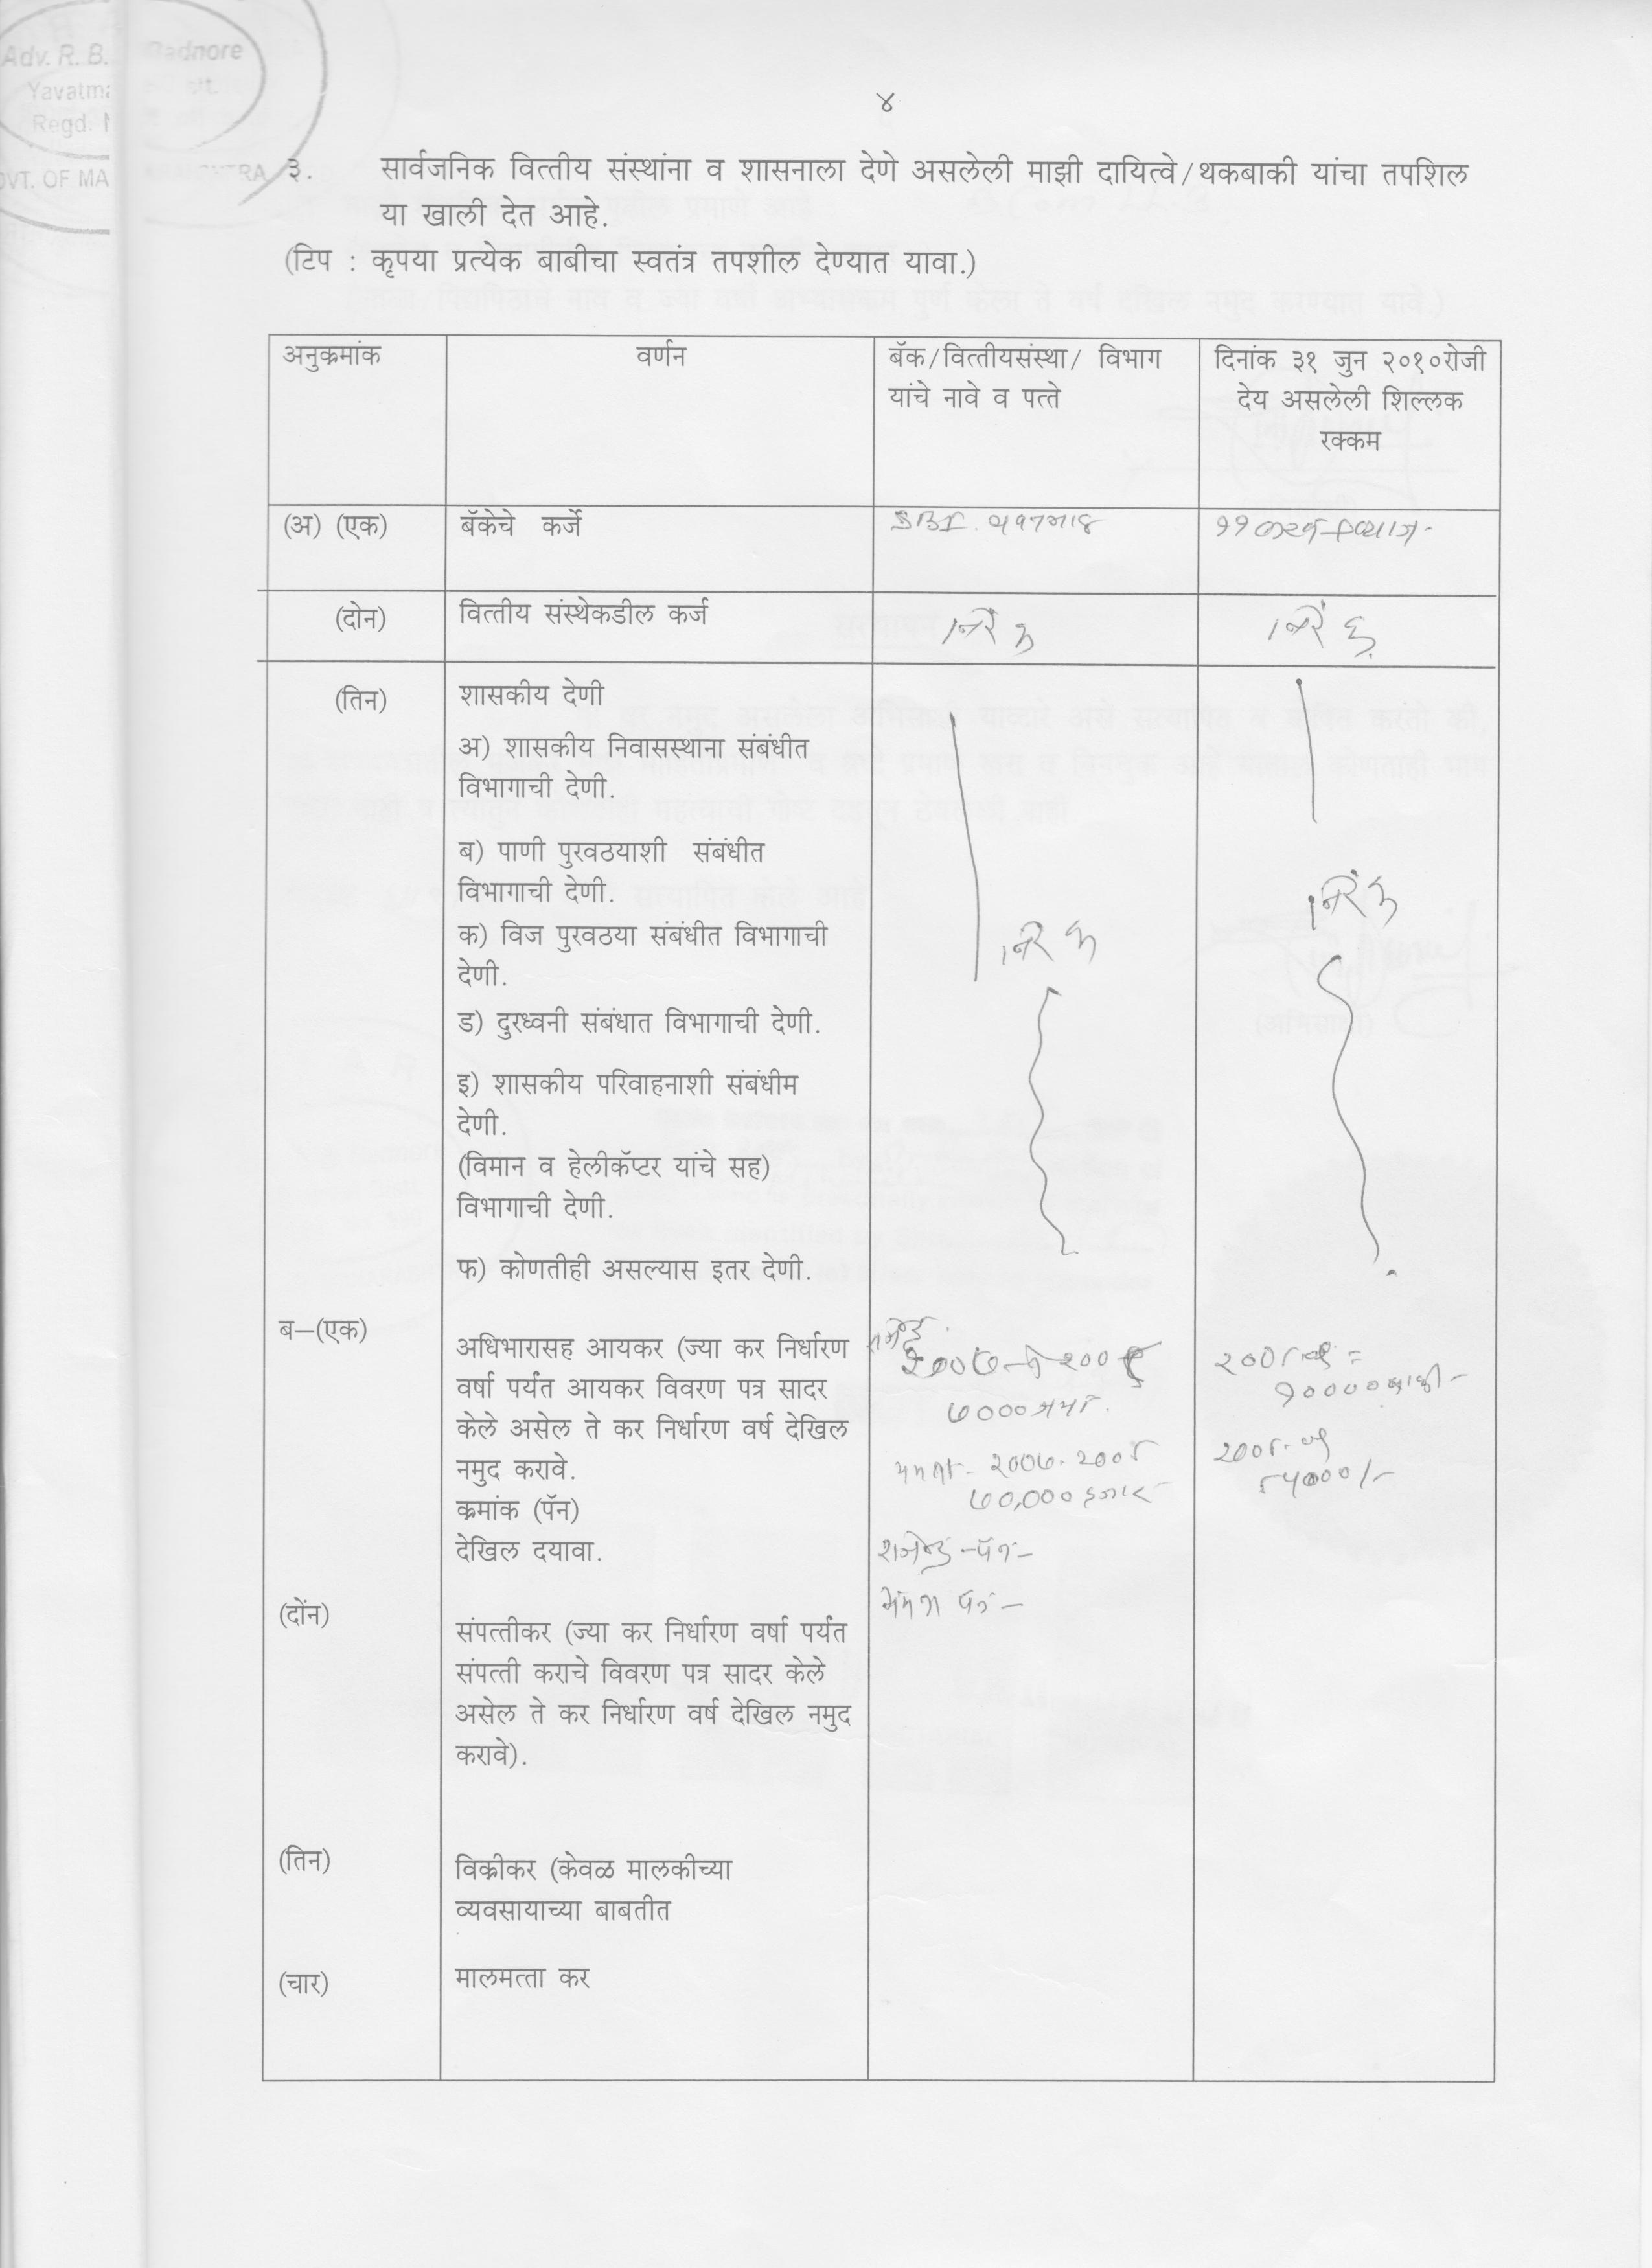 Adv. R. B.
Yavatma
Regd. N
OVT. OF MA
adnore
४
३. सार्वजनिक वित्तीय संस्थांना व शासनाला देणे असलेली माझी दायित्वे/थकबाकी यांचा तपशिल
या खाली देत आहे.
(टिप : कृपया प्रत्येक बाबीचा स्वतंत्र तपशील देण्यात यावा.)
अनुक्रमांक वर्णन बॅक/वित्तीयसंस्था/ विभाग
यांचे नावे व पत्ते
दिनांक ३१ जुन २०१०रोजी
देय असलेली शिल्लक
रक्कम
(अ) (एक) बॅकेचे कर्जे SBI.
(दोन) वित्तीय संस्थेकडील कर्ज निरंक निरंक
(तिन) शासकीय देणी
अ) शासकीय निवासस्थाना संबंधीत
विभागाची देणी.
ब) पाणी पुरवठयाशी संबंधीत
विभागाची देणी.
निरंक
क) विज पुरवठया संबंधीत विभागाची
देणी.
निरंक
ड) दुरध्वनी संबंधात विभागाची देणी.
इ) शासकीय परिवाहनाशी संबंधीम
देणी.
(विमान व हेलीकॅप्टर यांचे सह)
विभागाची देणी.
फ) कोणतीही असल्यास इतर देणी.
ब—(एक)
अधिभारासह आयकर (ज्या कर निर्धारण
वर्षा पर्यंत आयकर विवरण पत्र सादर
केले असेल ते कर निर्धारण वर्ष देखिल
नमुद करावे.
क्रमांक (पॅन)
देखिल दयावा.
७०००
१००००बाकी-
७०,००० हजार
राजेन्द्र -पॅन-
पॅन-
(दोंन)
संपत्तीकर (ज्या कर निर्धारण वर्षा पर्यंत
संपत्ती कराचे विवरण पत्र सादर केले
असेल ते कर निर्धारण वर्ष देखिल नमुद
करावे).
(तिन) विक्रीकर (केवळ मालकीच्या
व्यवसायाच्या बाबतीत
(चार) मालमत्ता कर